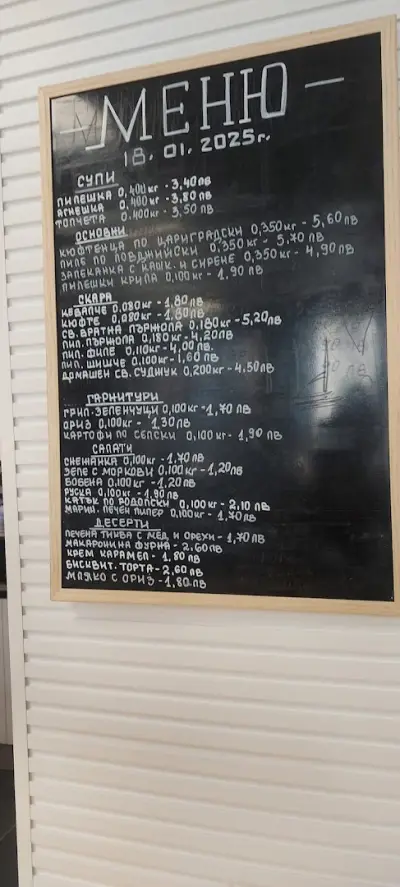 — МЕНЮ —
18.01.2025г.
СУПИ
ПИЛЕШКА 0,400кг - 3,40лв
АГНЕШКА 0,400кг - 3,80лв
ТОПЧЕТА 0.400кг - 3,50лв
ОСНОВНИ
КЮФТЕНЦА ПО ЦАРИГРАДСКИ 0,350кг - 5,60лв
ПИЛЕ ПО ЛОВДЖИЙСКИ 0,350кг - 5,70лв
ЗАПЕКАНКА С КАШК. И СИРЕНЕ 0,350кг - 4,90лв
ПИЛЕШКИ КРИЛА 0,100кг - 1.90лв
СКАРА
КЕБАПЧЕ 0,080кг - 1.80лв
КЮФТЕ 0,080кг - 1.80лв
СВ. ВРАТНА ПЪРЖОЛА 0,180кг - 5,20лв
ПИЛ. ПЪРЖОЛА 0,180кг - 4,20лв
ПИЛ. ФИЛЕ 0,110кг - 4,00лв.
ПИЛ. ШИШЧЕ 0,100кг - 1,60лв
ДОМАШЕН СВ. СУДЖУК 0,200кг - 4,50лв
ГАРНИТУРИ
ГРИЛ. ЗЕЛЕНЧУЦИ 0,100кг - 1,70лв
ОРИЗ 0,100кг - 1,30лв
КАРТОФИ ПО СЕЛСКИ 0,100кг - 1,90лв
САЛАТИ
СНЕЖАНКА 0,100кг - 1.70лв
ЗЕЛЕ С МОРКОВИ 0,100кг - 1,20лв
БОБЕНА 0,100кг - 1,20лв
РУСКА 0,100кг - 1,90лв
КАТЪК ПО РОДОПСКИ 0,100кг - 2,10лв
МАРИН. ПЕЧЕН ПИПЕР 0,100кг - 1,70лв
ДЕСЕРТИ
ПЕЧЕНА ТИКВА С МЕД И ОРЕХИ - 1,70лв
МАКАРОНИ НА ФУРНА - 2.60лв
КРЕМ КАРАМЕЛ - 1.80лв
БИСКВИТ. ТОРТА - 2,60лв
МЛЯКО С ОРИЗ - 1,80лв